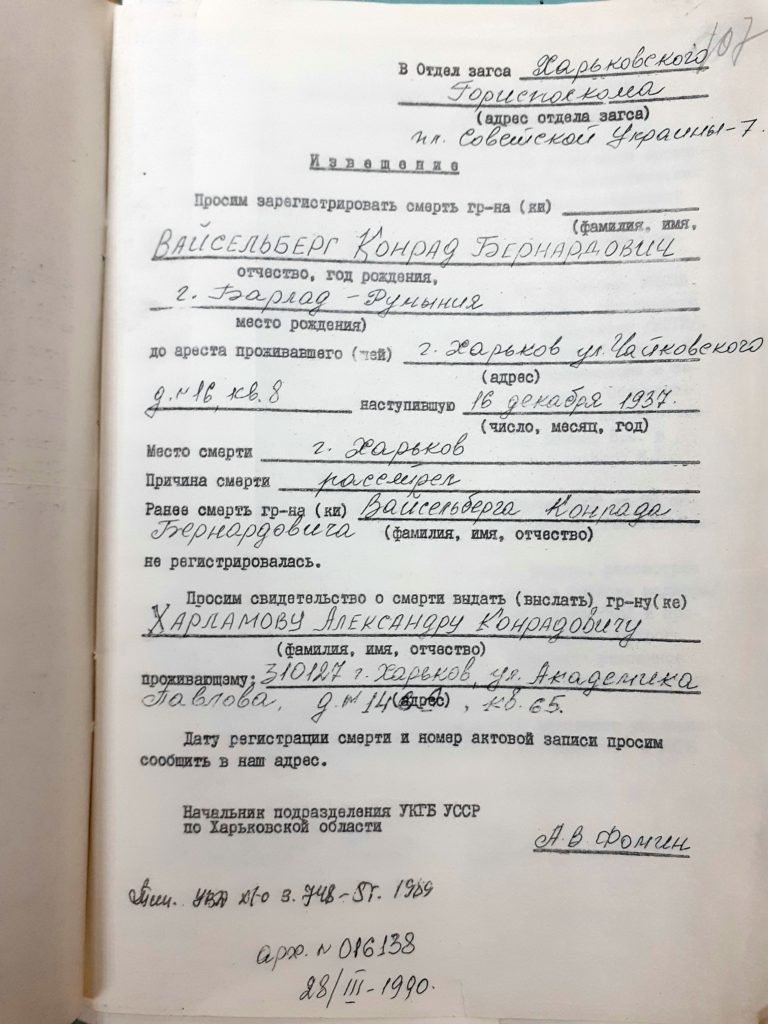 107
В Отдел загса Харьковского
Горисполкома
(адрес отдела загса)
пл. Советской Украины-7.
Извещение
Просим зарегистрировать смерть гр-на (ки)
(фамилия, имя,
ВАЙСЕЛЬБЕРГ КОНРАД БЕРНАРДОВИЧ
отчество, год рождения,
г. Барлад - Румыния
место рождения)
до ареста проживавшего (чей) г. Харьков ул. Чайковского
(адрес)
д. №16, кв. 8 наступившую 16 декабря 1937.
(число, месяц, год)
Место смерти г. Харьков
Причина смерти расстрел
Ранее смерть гр-на (ки) Вайсельберга Конрада
Бернардовича (фамилия, имя, отчество)
не регистрировалась.
Просим свидетельство о смерти выдать (выслать) гр-ну(ке)
ХАРЛАМОВУ АЛЕКСАНДРУ КОНРАДОВИЧУ
(фамилия, имя, отчество)
проживающему: 310127 г. Харьков, ул. Академика
Павлова, д. № (адрес), кв. 65.
Дату регистрации смерти и номер актовой записи просим
сообщить в наш адрес.
Начальник подразделения УКГБ УССР
по Харьковской области
А.В. Фомин
з. 748-5т. 1989
арх. № 016138
28/III-1990.